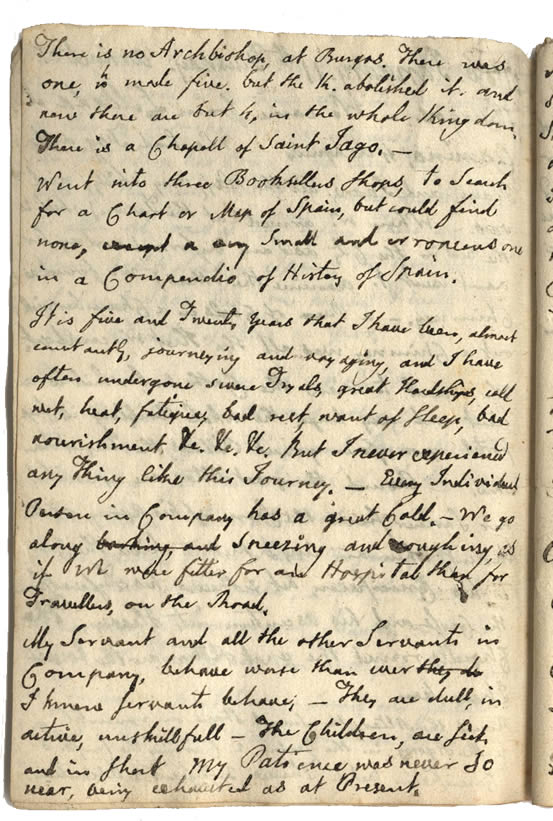 There is no Archbishop, at Burgos. There was
one, is made five. but the K. abolished it. and
now there are but 4, in the whole Kingdom.
There is a Chapell of Saint Jago. —
Went into three Booksellers Shops, to Search
for a Chart or Map of Spain, but could find
none, except a very Small and erroneous one
in a Compendio of History of Spain.
It is five and Twenty Years that I have been, almost
constantly, journeying and voyaging, and I have
often undergone severe Tryals, great Hardships, cold
wet, heat, fatigue, bad rest, want of Sleep, bad
nourishment, &c. &c. &c. But I never experienced
any Thing like this Journey. — Every Individual
Person in Company has a great Cold. — We go
along barking and Sneezing and coughing, as
if We were fitter for an Hospital than for
Travellers, on the Road.
My Servant and all the other Servants in
Company, behave worse than ever they do
I knew servants behave; — They are dull, in
active, unskillfull — The Children, are sick,
and in short My Patience was never so
near, being exhausted as at Present.